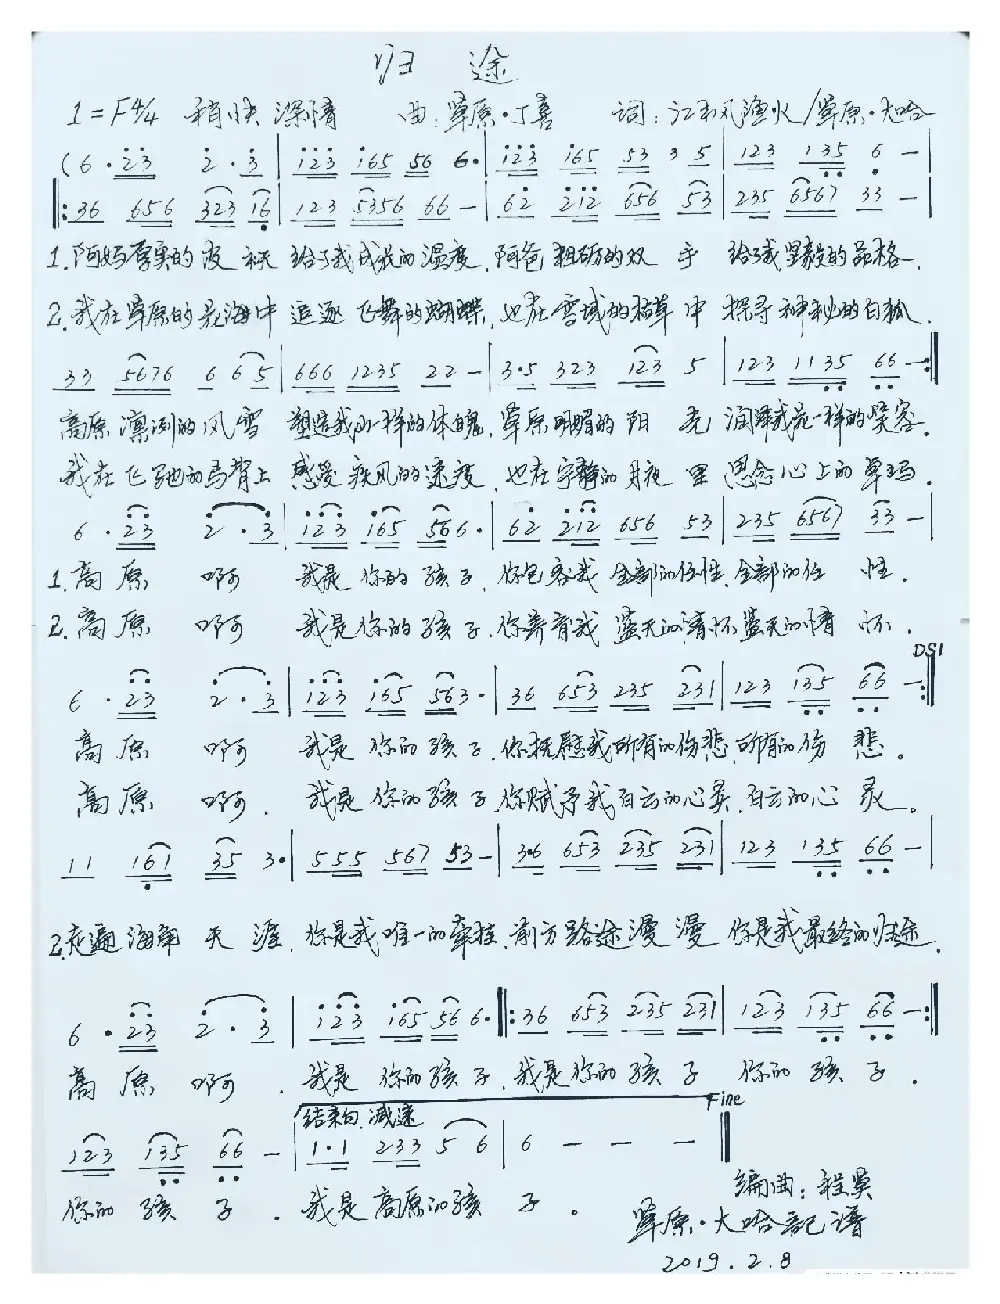 归 途
1=F 4/4 稍快 深情 曲:草原·丁喜 词:江枫渔火/草原·大哈
(6·23 2·3 | 123 165 56 6· | 123 165 53 3 5 | 123 135 6 - |
‖: 36 656 323 16 | 123 5356 66 - | 62 212 656 53 | 235 6567 33 - |
1.阿妈厚实的皮袄 给了我成长的温度,阿爸粗砺的双手 给了我坚毅的品格,
2.我在草原的花海中 追逐飞舞的蝴蝶,也在雪域的枯草中 探寻神秘的白狐.
33 5676 6 65 | 666 1235 22 - | 3·5 323 123 5 | 123 1135 66 - :‖
高原凛冽的风雪 塑造我山一样的体魄,草原明媚的阳光 润泽我花一样的笑容.
我在飞驰的马背上 感受疾风的速度,也在宁静的月夜里 思念心上的卓玛.
6·23 2·3 | 123 165 566· | 62 212 656 53 | 235 6567 33 - |
1.高原啊 我是你的孩子,你包容我全部的任性,全部的任性.
2.高原啊 我是你的孩子,你养育我蓝天的情怀蓝天的情怀.
DS1
6·23 2·3 | 123 165 563· | 36 653 235 231 | 123 135 66 - :‖
高原啊 我是你的孩子,你抚慰我所有的伤悲,所有的伤悲。
高原啊. 我是你的孩子,你赋予我白云的心灵,白云的心灵。
11 161 35 3· | 555 567 53 - | 3·6 653 235 231 | 123 135 66 - |
2.走遍海角天涯,你是我唯一的牵挂,前方路途漫漫 你是我最终的归途.
6·23 2·3 | 123 165 56 6· ‖: 36 653 235 231 | 123 135 66 - :‖
高原啊. 我是你的孩子,我是你的孩子 你的孩子.
结束句 减速 Fine
123 135 66 - | 1·1 233 5 6 | 6 - - - ‖
你的孩子. 我是高原的孩子。
编曲:程昊
草原·大哈記谱
2019.2.8